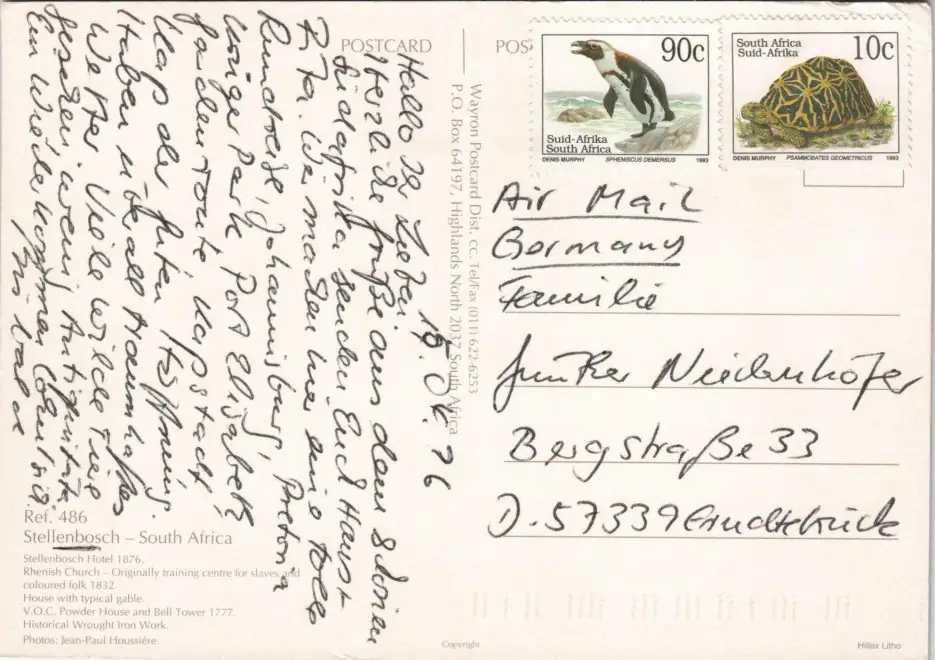 POSTCARD
Hallo Ihr Lieben 15.Okt. 96
Herzliche Grüße aus dem schönen
Südafrika senden Euch Hans +
Rita. Wir machen hier eine tolle
Rundreise, Johannisburg, Pretoria
Krüger Park Port Elisabeth
Gardenroute Kapstadt,
Kap der guten Hoffnung.
Haben überall traumhaftes
Wetter Viele wilde Tiere
gesehen, wenig Antiquitäten
Ein Wiederkommen lohnt sich.
Bis bald
Ref. 486
Stellenbosch – South Africa
Stellenbosch Hotel 1876.
Rhenish Church – Originally training centre for slaves and
coloured folk 1832.
House with typical gable.
V.O.C. Powder House and Bell Tower 1777.
Historical Wrought Iron Work.
Photos: Jean-Paul Houssiére.
Wayron Postcard Dist. cc. Tel/Fax (011) 622-6253
P.O. Box 64197, Highlands North 2037 South Africa
Copyright
POS
90c
Suid-Afrika
South Africa
DENIS MURPHY SPHENISCUS DEMERSUS 1993
South Africa
Suid-Afrika
10c
DENIS MURPHY PSAMMOBATES GEOMETRICUS 1993
Air Mail
Germany
Familie
Junker Niedenhöfer
Bergstraße 33
D.57339 Erndtebrück
Hillox Litho